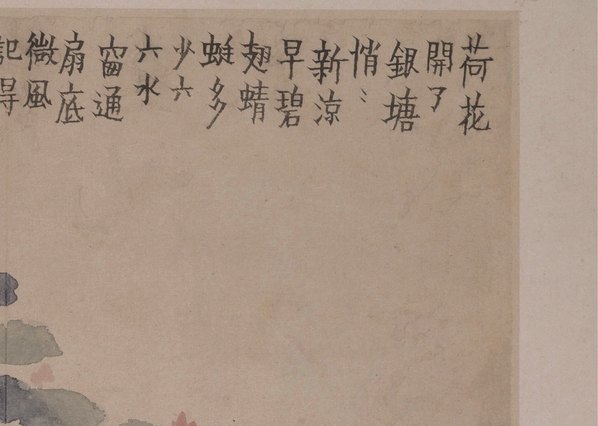 荷花
開了
銀塘
悄〻
新涼
早碧
翅蜻
蜓多
少六
六水
窗通
扇底
微風
記得